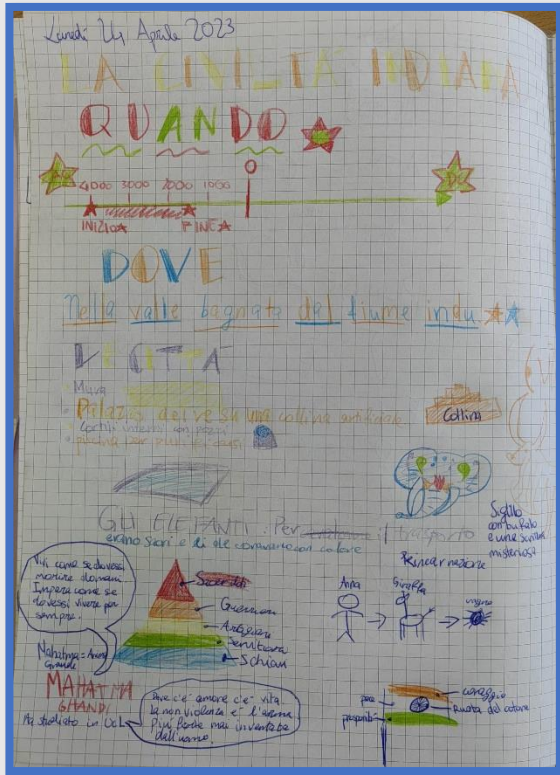 Lunedì 24 Aprile 2023
LA CIVILTA' INDIANA
QUANDO
AC
0
DC
4000 3000 2000 1000
INIZIO FINE
DOVE
Nella valle bagnata dal fiume indu
LE CITTA'
Mura
Palazzo del re su una collina artificiale
Collina
Cortili interni con pozzi
piscina per
GLI ELEFANTI: Per il trasporto
erano sacri e li decoravano con colore
Sigillo
con bufalo
e una scrittura
misteriosa
Reincarnazione
Anna Giraffa ragno
Vivi come se dovessi
morire domani
Impara come se
dovessi vivere per
sempre.
Sacerdoti
Guerrieri
Artigiani
Servitori
Schiavi
Mahatma = Anima
Grande
MAHATMA
GHANDI
Ha studiato in UCL
Dove c'è amore c'è vita
la non violenza e' l'arma
più forte mai inventata
dall'uomo.
coraggio
pace
Ruota del cotone
prosperità